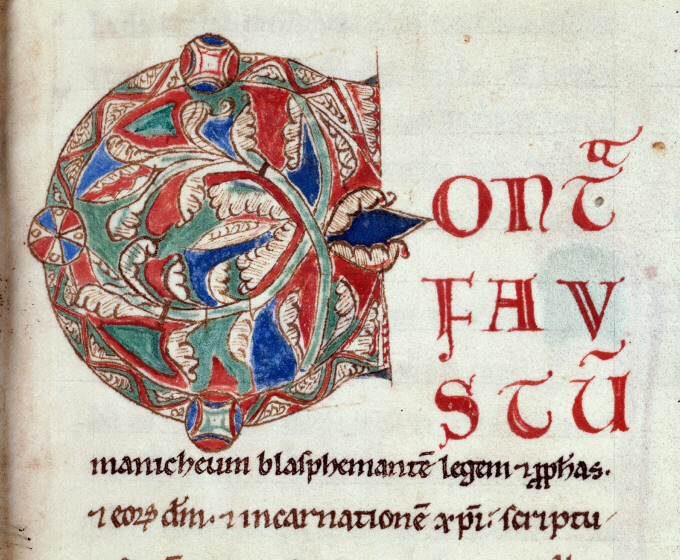 CONT̄ᵃ
FAV
STŪ
manicheum blasphemantē legem ⁊ ꝓphās.
⁊ eorꝝ dm̄. ⁊ incarnationē xp̄i. scriptu